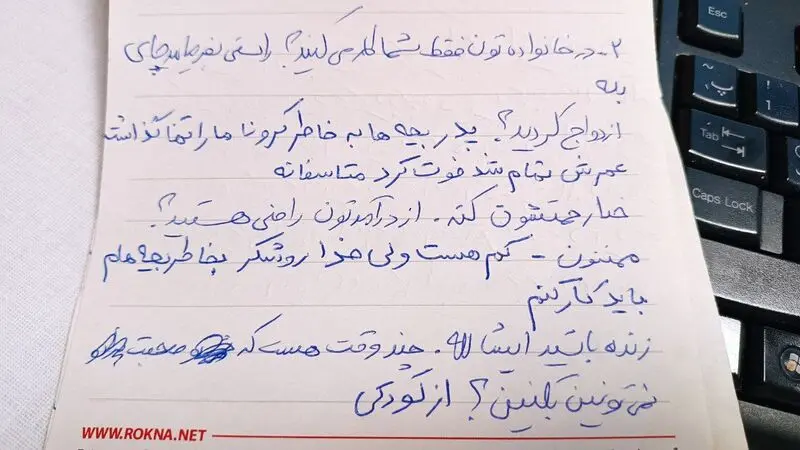 ۲- در خانواده تون فقط شما کار می کنید؟ راستی
بله
ازدواج کردید؟ پدر بچه ها به خاطر کرونا ما را تنها گذاشت
عمرش تمام شد فوت کرد متاسفانه
خدا رحمتشون کنه. از درآمدتون راضی هستید؟
ممنون - کم هست ولی خدا رو شکر بخاطر بچه هام
باید کار کنم
زنده باشید ایشالله. چند وقت هست که صحبت
نمی تونین بکنین؟ از کودکی
WWW.ROKNA.NET
Esc
پ
!
1
Tab
Caps Lock